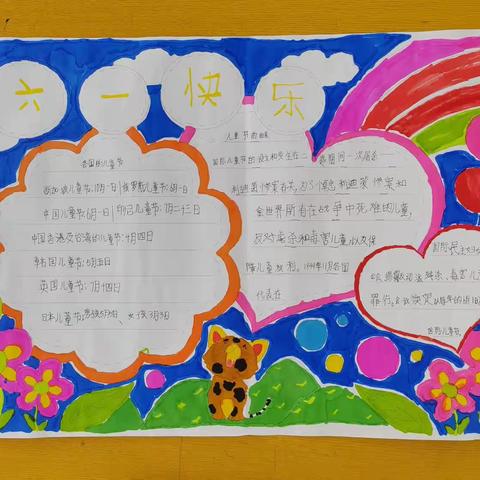 六一快乐
各国的儿童节
新加坡儿童节:10月一日 俄罗斯儿童节:6月一日
中国儿童节6月一日 印尼儿童节:7月二十三日
中国香港及台湾的儿童节:4月四日
韩国儿童节:5月五日
英国儿童节:7月十四日
日本儿童节:男孩5月5日、女孩3月3日
儿童节的由来
国际儿童节的设立和发生在二战期间一次屠杀——
利迪策惨案有关,为了悼念利迪策惨案和
全世界所有在战争中死难的儿童,
反对虐杀和毒害儿童,以及保
障儿童权利。1949年11月各国
代表在
国际民主
罪行。会议决定以每年的6月1日
国际儿童节